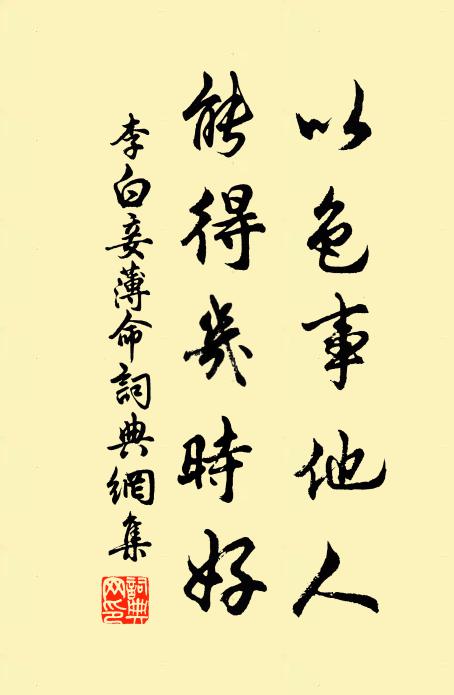 以色事他人
能得幾時好
李白妾薄命詞典網集
詞典
網印